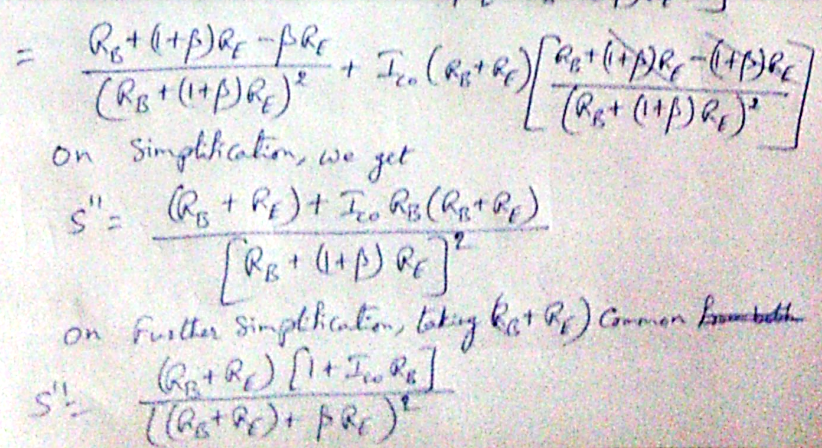 = \frac{R_B + (1+β)R_E - βR_E}{(R_B + (1+β)R_E)^2} + I_{co}(R_B + R_E) [\frac{R_B + (1+β)R_E - (1+β)R_E}{(R_B + (1+β)R_E)^2}]
on simplification, we get
S'' = \frac{(R_B + R_E) + I_{co} R_B (R_B + R_E)}{[R_B + (1+β) R_E]^2}
on Further Simplification, taking R_B + R_E) Common
S'' = \frac{(R_B + R_E) [1 + I_{co} R_B]}{((R_B + R_E) + βR_E)^2}